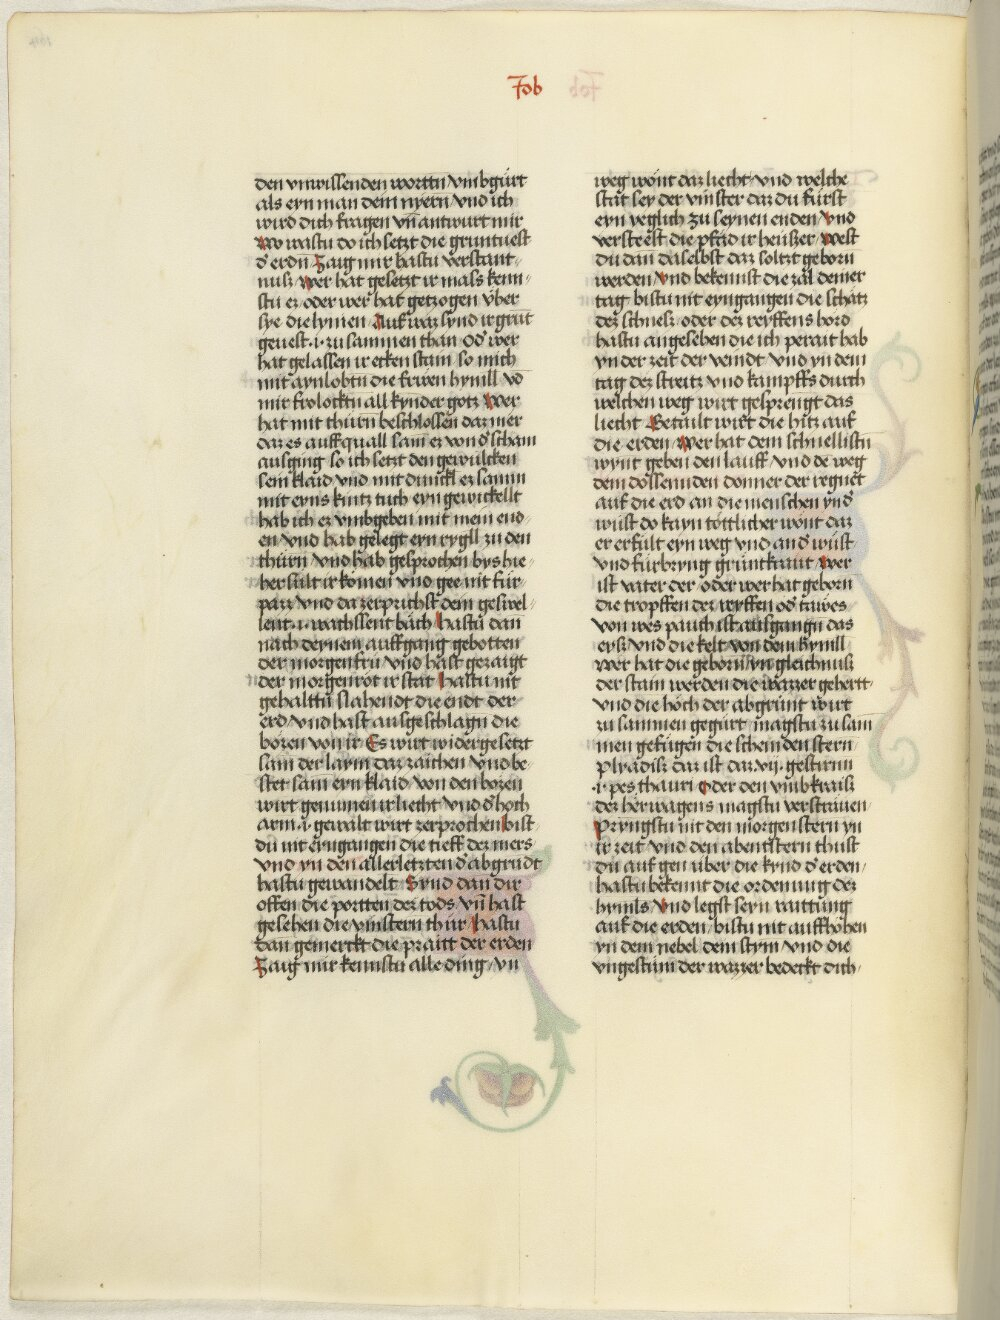 Job
den vnwissenden wortten vmbgürt
als eyn man dem nyern vnd ich
wird dich fragen vn̄ antwurt mir
Wo wastu do ich setzt die gruntuest
d' erdn̄ Saig mir hastu verstant-
nusz Wer hat gesetzt ir mals kenn-
stu ez oder wer hat getzogen vber
sye die lymen Auf waz synd ir grūt
geuest .i. zu sammen than Od' wer
hat gelassen ir ecken stain so mich
mit aynlobtn̄ die fruen hymll vō
mir frolocktn̄ all kynder gotz Wer
hat mit thurn beschlossen daz mer
daz es auffquall sam ez von d' scham
ausging so ich setzt den gewulcken
sein klaid vnd mit dunckl ez samm
mit eyns kintz tuch eyn gewickellt
hab ich ez vmbgeben mit mein end-
en vnd hab gelegt eyn rygll zu den
thürn vnd hab gesprochen bys hie-
her stilt ir komen vnd gee nit für-
paz vnd da zerprichst dein geswel-
lent .i. wachssent bäch hastu dan
nach deynem auffgang gebotten
der morgenfru vnd hast gezaigt
der morgenrot ir stat hastu nit
gehalttn̄ slahendt die endt der
erd vnd hast ausgeschlagn die
bozen von ir Es wirt widergesetzt
sam der laym daz zaichen vnd be-
stet sam eyn klaid von den bozen
wirt genumen ir liecht vnd d' hoch
arm .i. gewalt wirt zerprochen bist
du nit eyngangen die tieff dez mers
vnd yn den allerletzten d' abgrūdt
hastu gewandelt Synd dan dir
offen die portten dez tods vn̄ hast
gesehen die vinstern thür hastu
dan gemerckt die praitt der erden
Saig mir kennstu alle ding yn
weg wont daz liecht vnd welche
stat sey der vinster daz du fürst
eyn yeglich zu seynen enden Vnd
versteest die pfad ir heüszer West
du dan daselbst daz soltzt geborn
werden Vnd bekennst die zal deiner
tag bistu nit eyngangen die schätz
dez schnesz oder dez reyffens hord
hastu angesehen die ich perait hab
yn der zeit der veindt vnd yn dem
tag dez streitz vnd kampffs durch
welchen weg wirt gesprengt das
liecht Getailt wirt die hitz auf
die erden Wer hat dem schnellistn̄
wynt geben den lauff vnd dē weg
dem dossennden donner der regnet
auf die erd an die menschen ynd'
wüst do kayn töttlicher wont daz
er erfult eyn weg vnd and' wüst
vnd fürbryng grüntkraut Wer
ist vater der oder wer hat geborn
die tropffen dez reyffen od' tawes
von wes pauch ist ausgangn das
eysz vnd die kelt von dem hymll
wer hat die geborn yn gleichnusz
der stain werden die wazzer gehertt
vnd die höch der abgrunt wirt
zu sammen gegürt magstu zu sam
men gefugen die scheinden stern
plyadisz daz ist daz .vij. gestirnn
.i. pes thauri Oder den vmbkraisz
dez herwagens magstu verstrauen
Pryngstu nit den morgenstern yn
ir zeit vnd den abentstern thust
du auf gen über die kynd d' erden
hastu bekennt die ordenung dez
hymls Vnd legst seyn raittung
auf die erden bistu nit auffhöhen
yn dem nebel dein stym vnd die
vngestüm der wazzer bedeckt dich